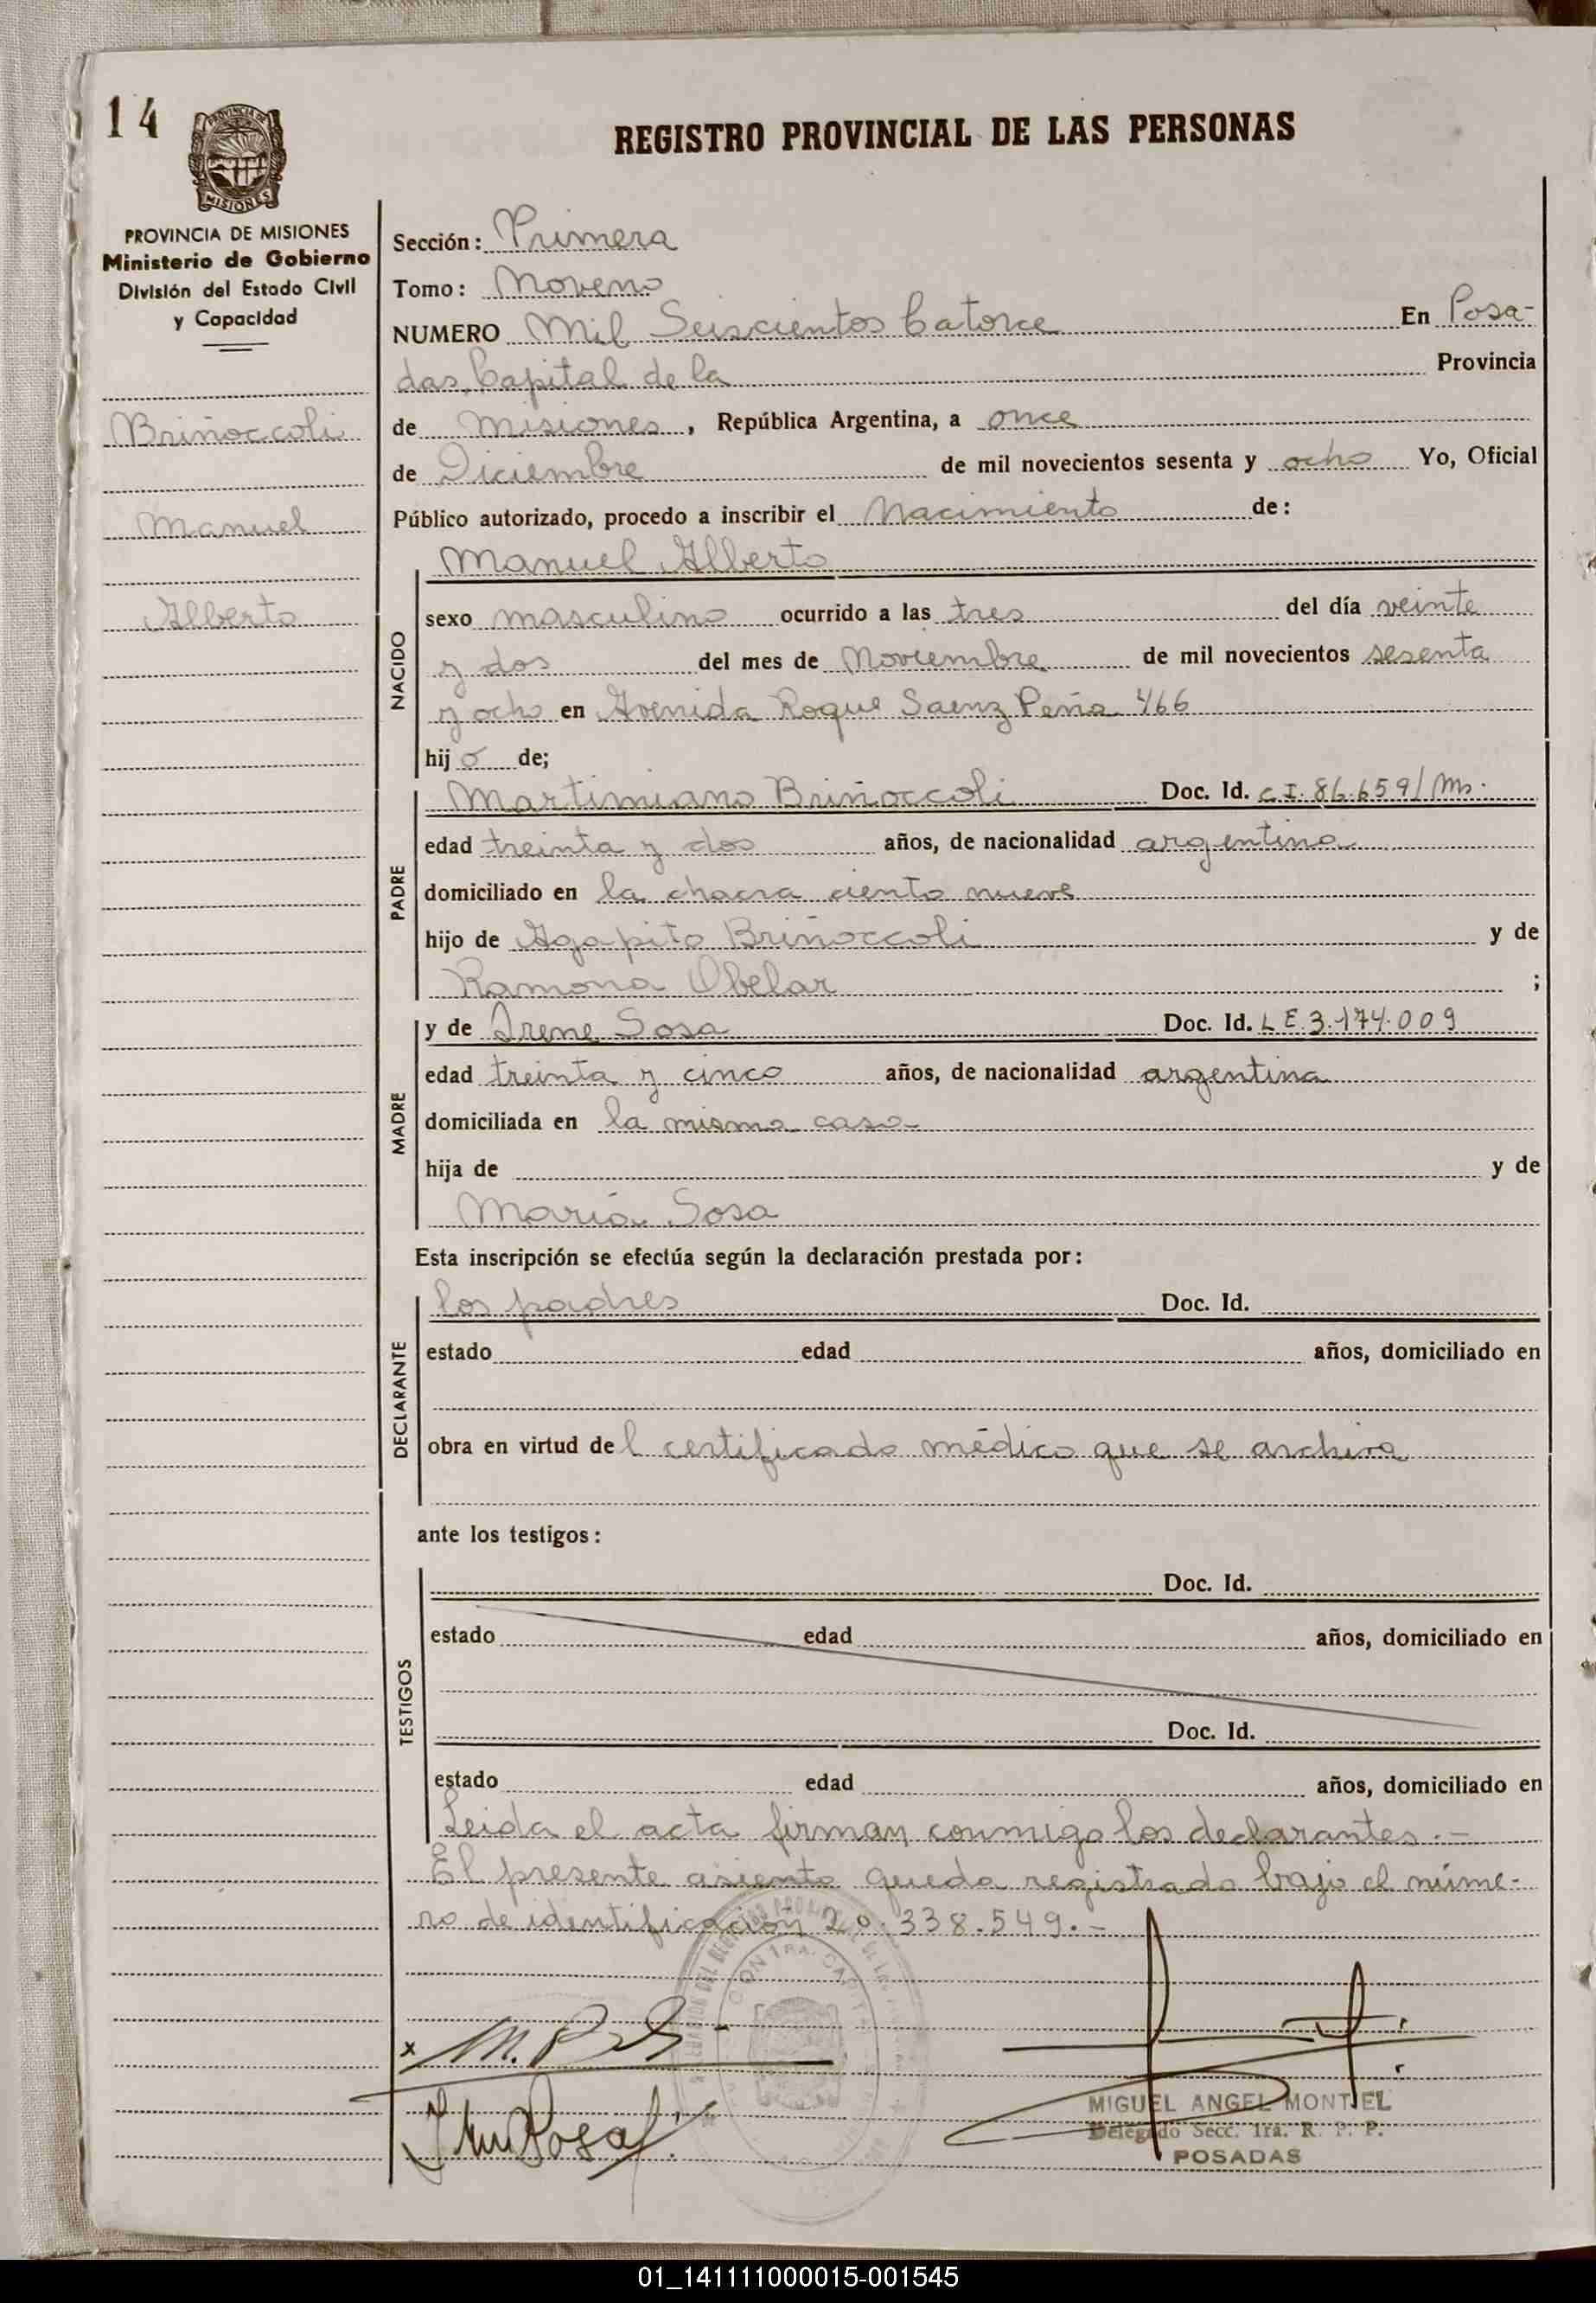 14
PROVINCIA DE MISIONES
Ministerio de Gobierno
División del Estado Civil
y Capacidad
Briñoccoli
Manuel
Alberto
REGISTRO PROVINCIAL DE LAS PERSONAS
Sección: Primera
Tomo: Noveno
NUMERO Mil Seiscientos Catorce En Posa-
das, Capital de la Provincia
de Misiones, República Argentina, a once
de Diciembre de mil novecientos sesenta y ocho Yo, Oficial
Público autorizado, procedo a inscribir el Nacimiento de:
Manuel Alberto
NACIDO
sexo masculino ocurrido a las tres del día veinte
y dos del mes de Noviembre de mil novecientos sesenta
y ocho en Avenida Roque Saenz Peña 466
hijo de;
PADRE
Martimiano Briñoccoli Doc. Id. C.I. 86.659/Ms.
edad treinta y dos años, de nacionalidad argentina
domiciliado en la chacra ciento nueve
hijo de Agapito Briñoccoli y de
Ramona Obelar ;
MADRE
y de Irene Sosa Doc. Id. L E 3.174.009
edad treinta y cinco años, de nacionalidad argentina
domiciliada en la misma casa
hija de y de
María Sosa
Esta inscripción se efectúa según la declaración prestada por:
DECLARANTE
los padres Doc. Id.
estado edad años, domiciliado en
obra en virtud del certificado médico que se archiva
ante los testigos:
TESTIGOS
Doc. Id.
estado edad años, domiciliado en
Doc. Id.
estado edad años, domiciliado en
Leida el acta firman conmigo los declarantes.-
El presente asiento queda registrado bajo el núme-
ro de identificación 20.338.549.-
MIGUEL ANGEL MONTIEL
Delegado Secc. 1ra. R. P. P.
POSADAS
01_141111000015-001545